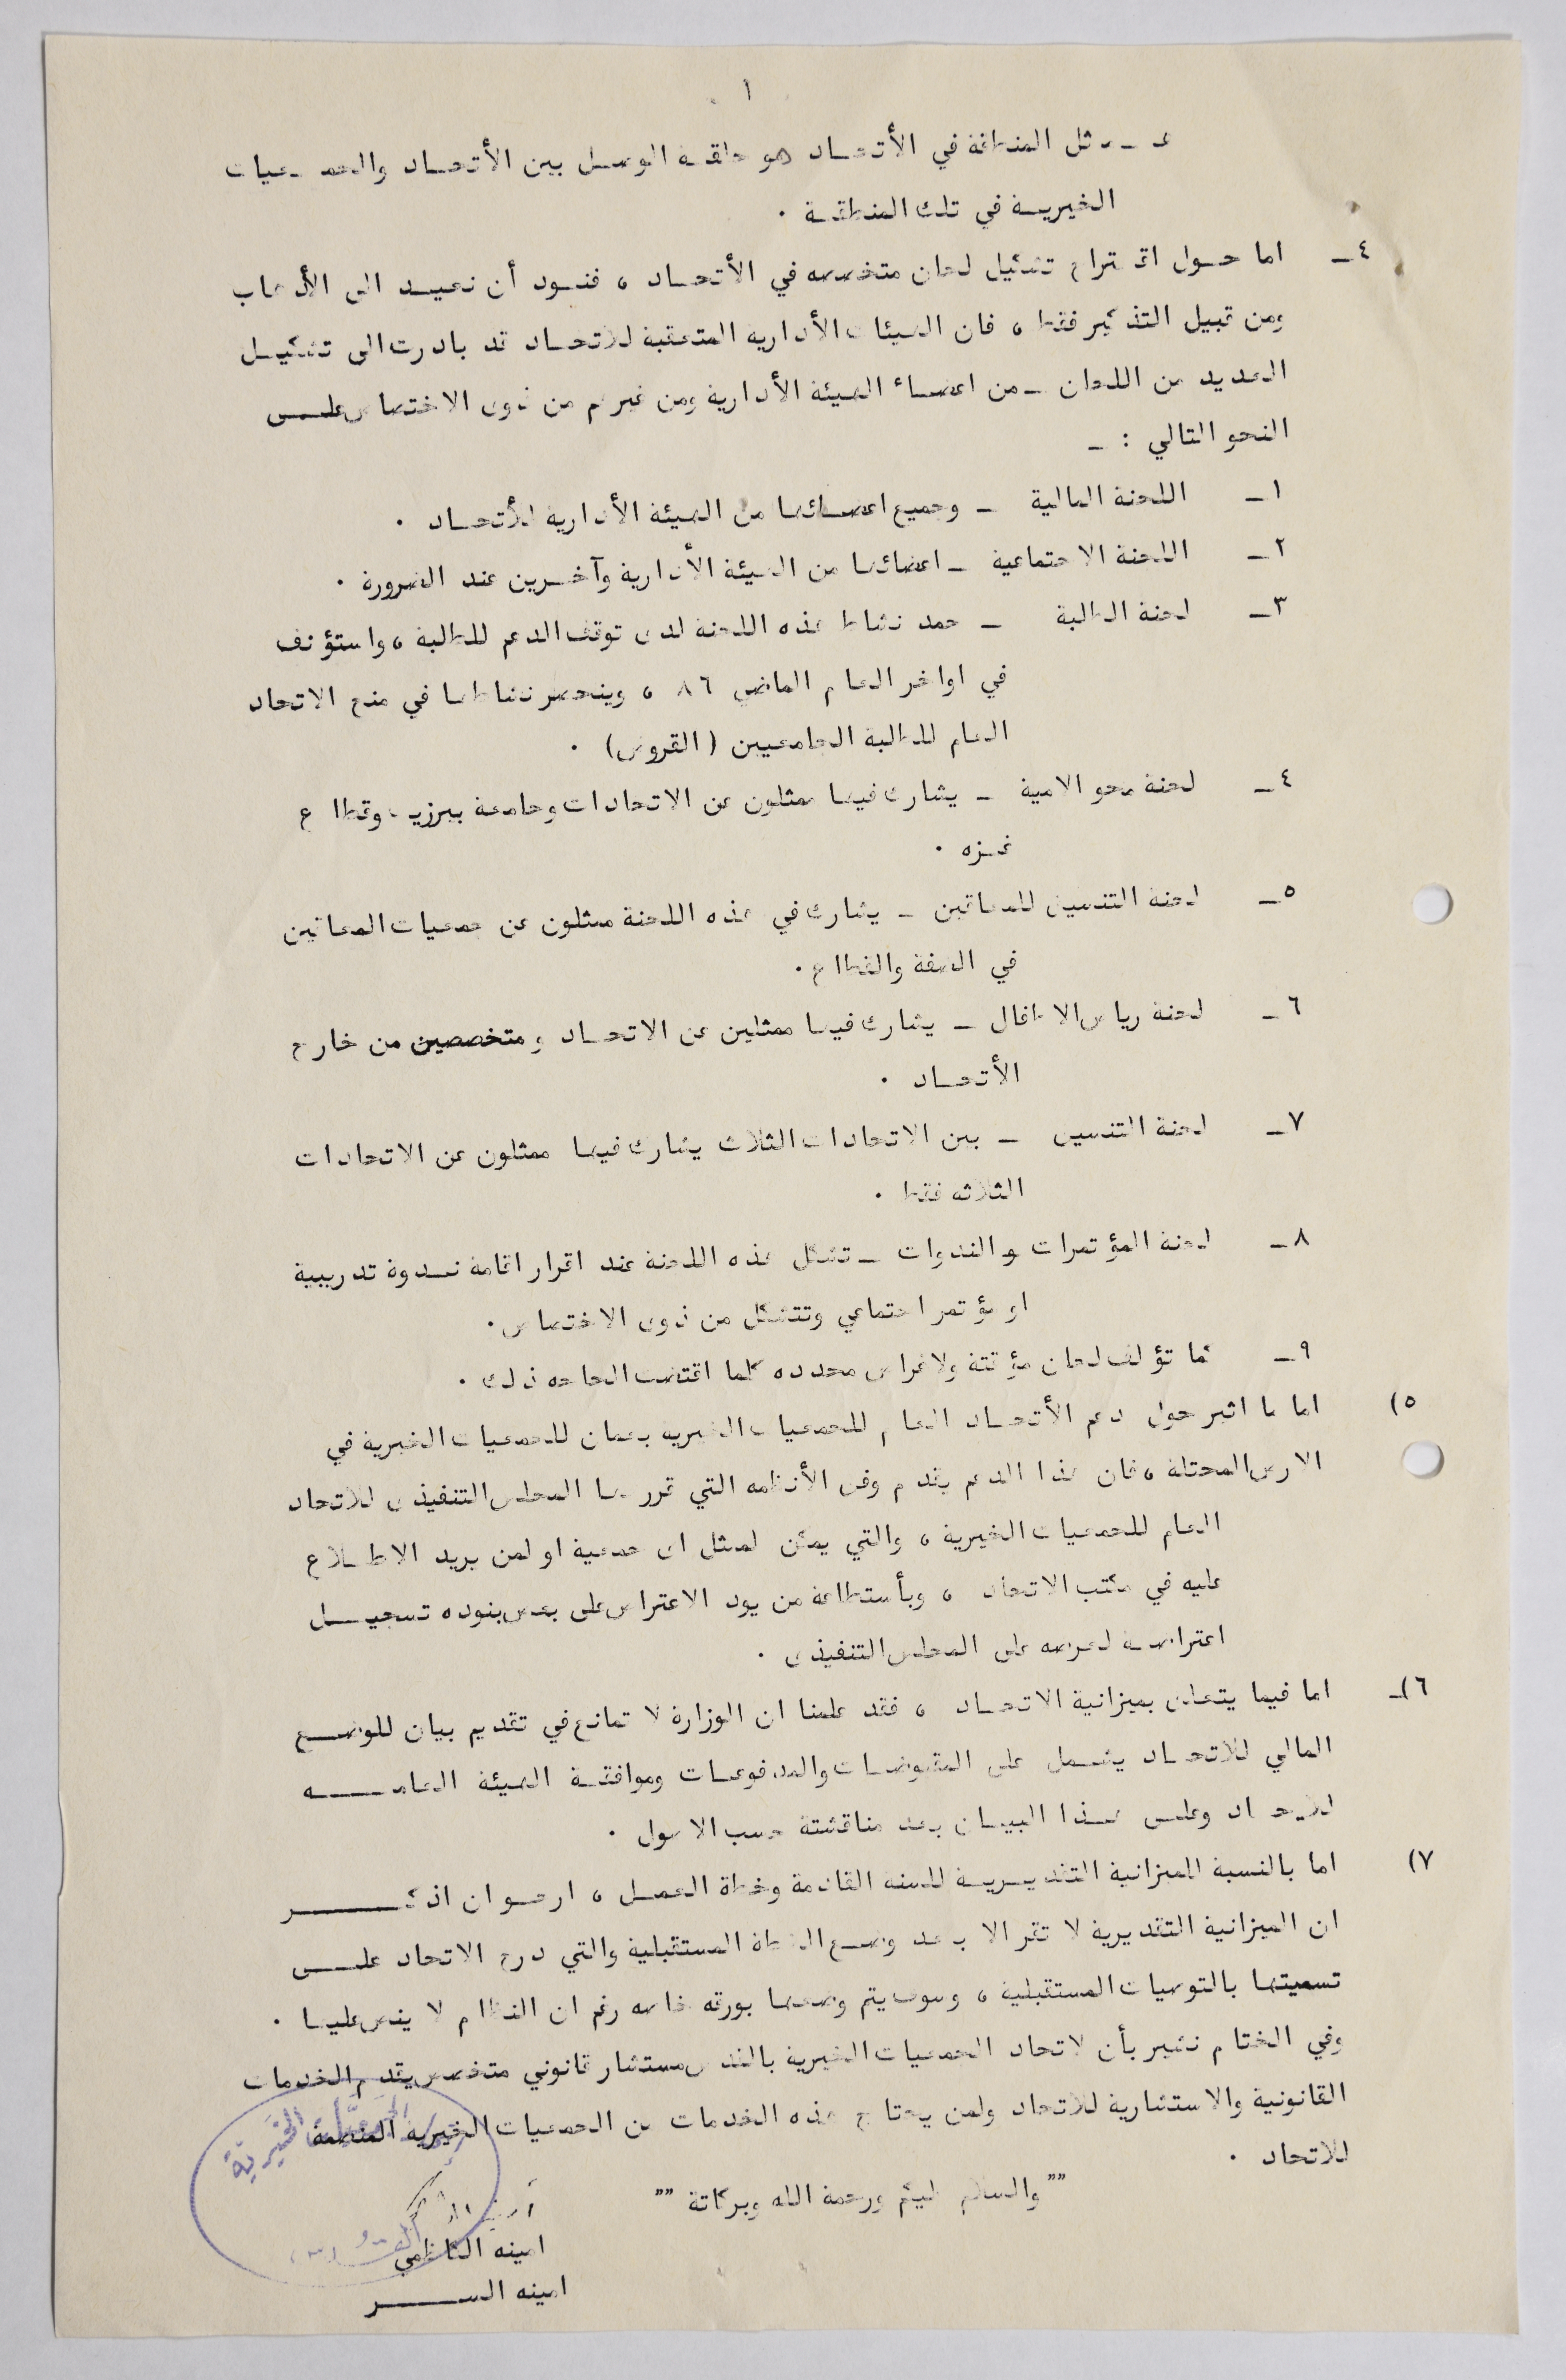 ١
ممثل المنطقة في الأتحــاد هو حلقـة الوصـل بين الأتحـاد والجمـعيات
الخيريـة في تلك المنطقـة .
٤ــ اما حـول اقـتراح تشكيل لجان متخصصه في الأتحـاد ، فنـود أن نعيـد الى الأذهاب
ومن قبيل التذكير فقط ، فان الهيئات الأداريه المتعقبة للاتحـاد قد بادرت الى تشكيـل
العديد من اللجان ــ من اعضـاء الهيئة الأدارية ومن غيرهم من ذوى الاختصاص علـــى
النحو التالي : ــ
١ــ اللجنة المالية ــ وجميع اعضـائها من الهيئة الأدارية للأتحـاد .
٢ــ اللجنة الاجتماعية ــ اعضائها من الهيئة الأدارية وآخـرين عند الضرورة .
٣ــ لجنة الطلبة ــ جمد نشاط هذه اللجنة لدى توقف الدعم للطلبة ، واستؤنف
في اواخر العام الماضي ٨٦ ، وينحصر نشاطها في منح الاتحاد
العام للطلبة الجامعيين ( القروض) .
٤ــ لجنة محو الامية ــ يشارك فيها ممثلون عن الاتحادات وجامعة بيرزيت وقطاع
غـزه .
٥ــ لجنة التنسيق للمعاقين ــ يشارك في هذه اللجنة ممثلون عن جمعيات المعاقين
في الضفة والقطاع .
٦ــ لجنة رياض الاطفال ــ يشارك فيها ممثلين عن الاتحـاد ومتخصصين من خارج
الأتحـاد .
٧ــ لجنة التنسيق ــ بين الاتحادات الثلاث يشارك فيها ممثلون عن الاتحادات
الثلاثه فقط .
٨ــ لجنة المؤتمرات والندوات ــ تشكل هذه اللجنة عند اقرار اقامة نـدوة تدريبية
او مؤتمر اجتماعي وتتشكل من ذوى الاختصاص .
٩ــ كما تؤلف لجان مؤقتة ولاغراض محدده كلما اقتضت الحاجه ذلك .
٥) اما ما اثير حول دعم الأتحـاد العام للجمعيات الخيريه بعمان للجمعيات الخيرية في
الارض المحتلة ، فان هذا الدعم يقدم وفق الأنظمه التي قررها المجلس التنفيذى للاتحاد
العام للجمعيات الخيرية ، والتي يمكن لممثل اى جمعية او لمن يريد الاطـلاع
عليه في مكتب الاتحاد ، وبأستطاعة من يود الاعتراض على بعض بنوده تسجيـل
اعتراضـه لعرضه على المجلس التنفيذى .
٦)ــ اما فيما يتعلق بميزانية الاتحـاد ، فقد علمنا ان الوزارة لا تمانع في تقديم بيان للوضـع
المالي للاتحـاد يشـمل على المقبوضـات والمدفوعـات وموافقـة الهيئة العامـــه
للاتحـاد وعلـى هـذا البيـان بعد مناقشتة حسب الاصول .
٧) اما بالنسبة للميزانية التقديـريـة للسنه القادمة وخطة العمـل ، ارجـو ان اذكــــر
ان الميزانية التقديرية لا تقر الا بعد وضـع الخطة المستقبلية والتي درج الاتحاد علـــى
تسميتها بالتوصيات المستقبلية ، وسوف يتم وضعها بورقه خاصه رغم ان النظام لا ينص عليها .
وفي الختام نشير بأن لاتحاد الجمعيات الخيرية بالقدس مستشار قانوني متخصص يقدم الخدمات
القانونية والاستشارية للاتحاد ولمن يحتاج هذه الخدمات من الجمعيات الخيرية المنضمة
للاتحاد .
"" والسلام عليكم ورحمة الله وبركاتة ""
الجمعيات الخيرية
القدس
امينه الكاظمي
امينه الســـر